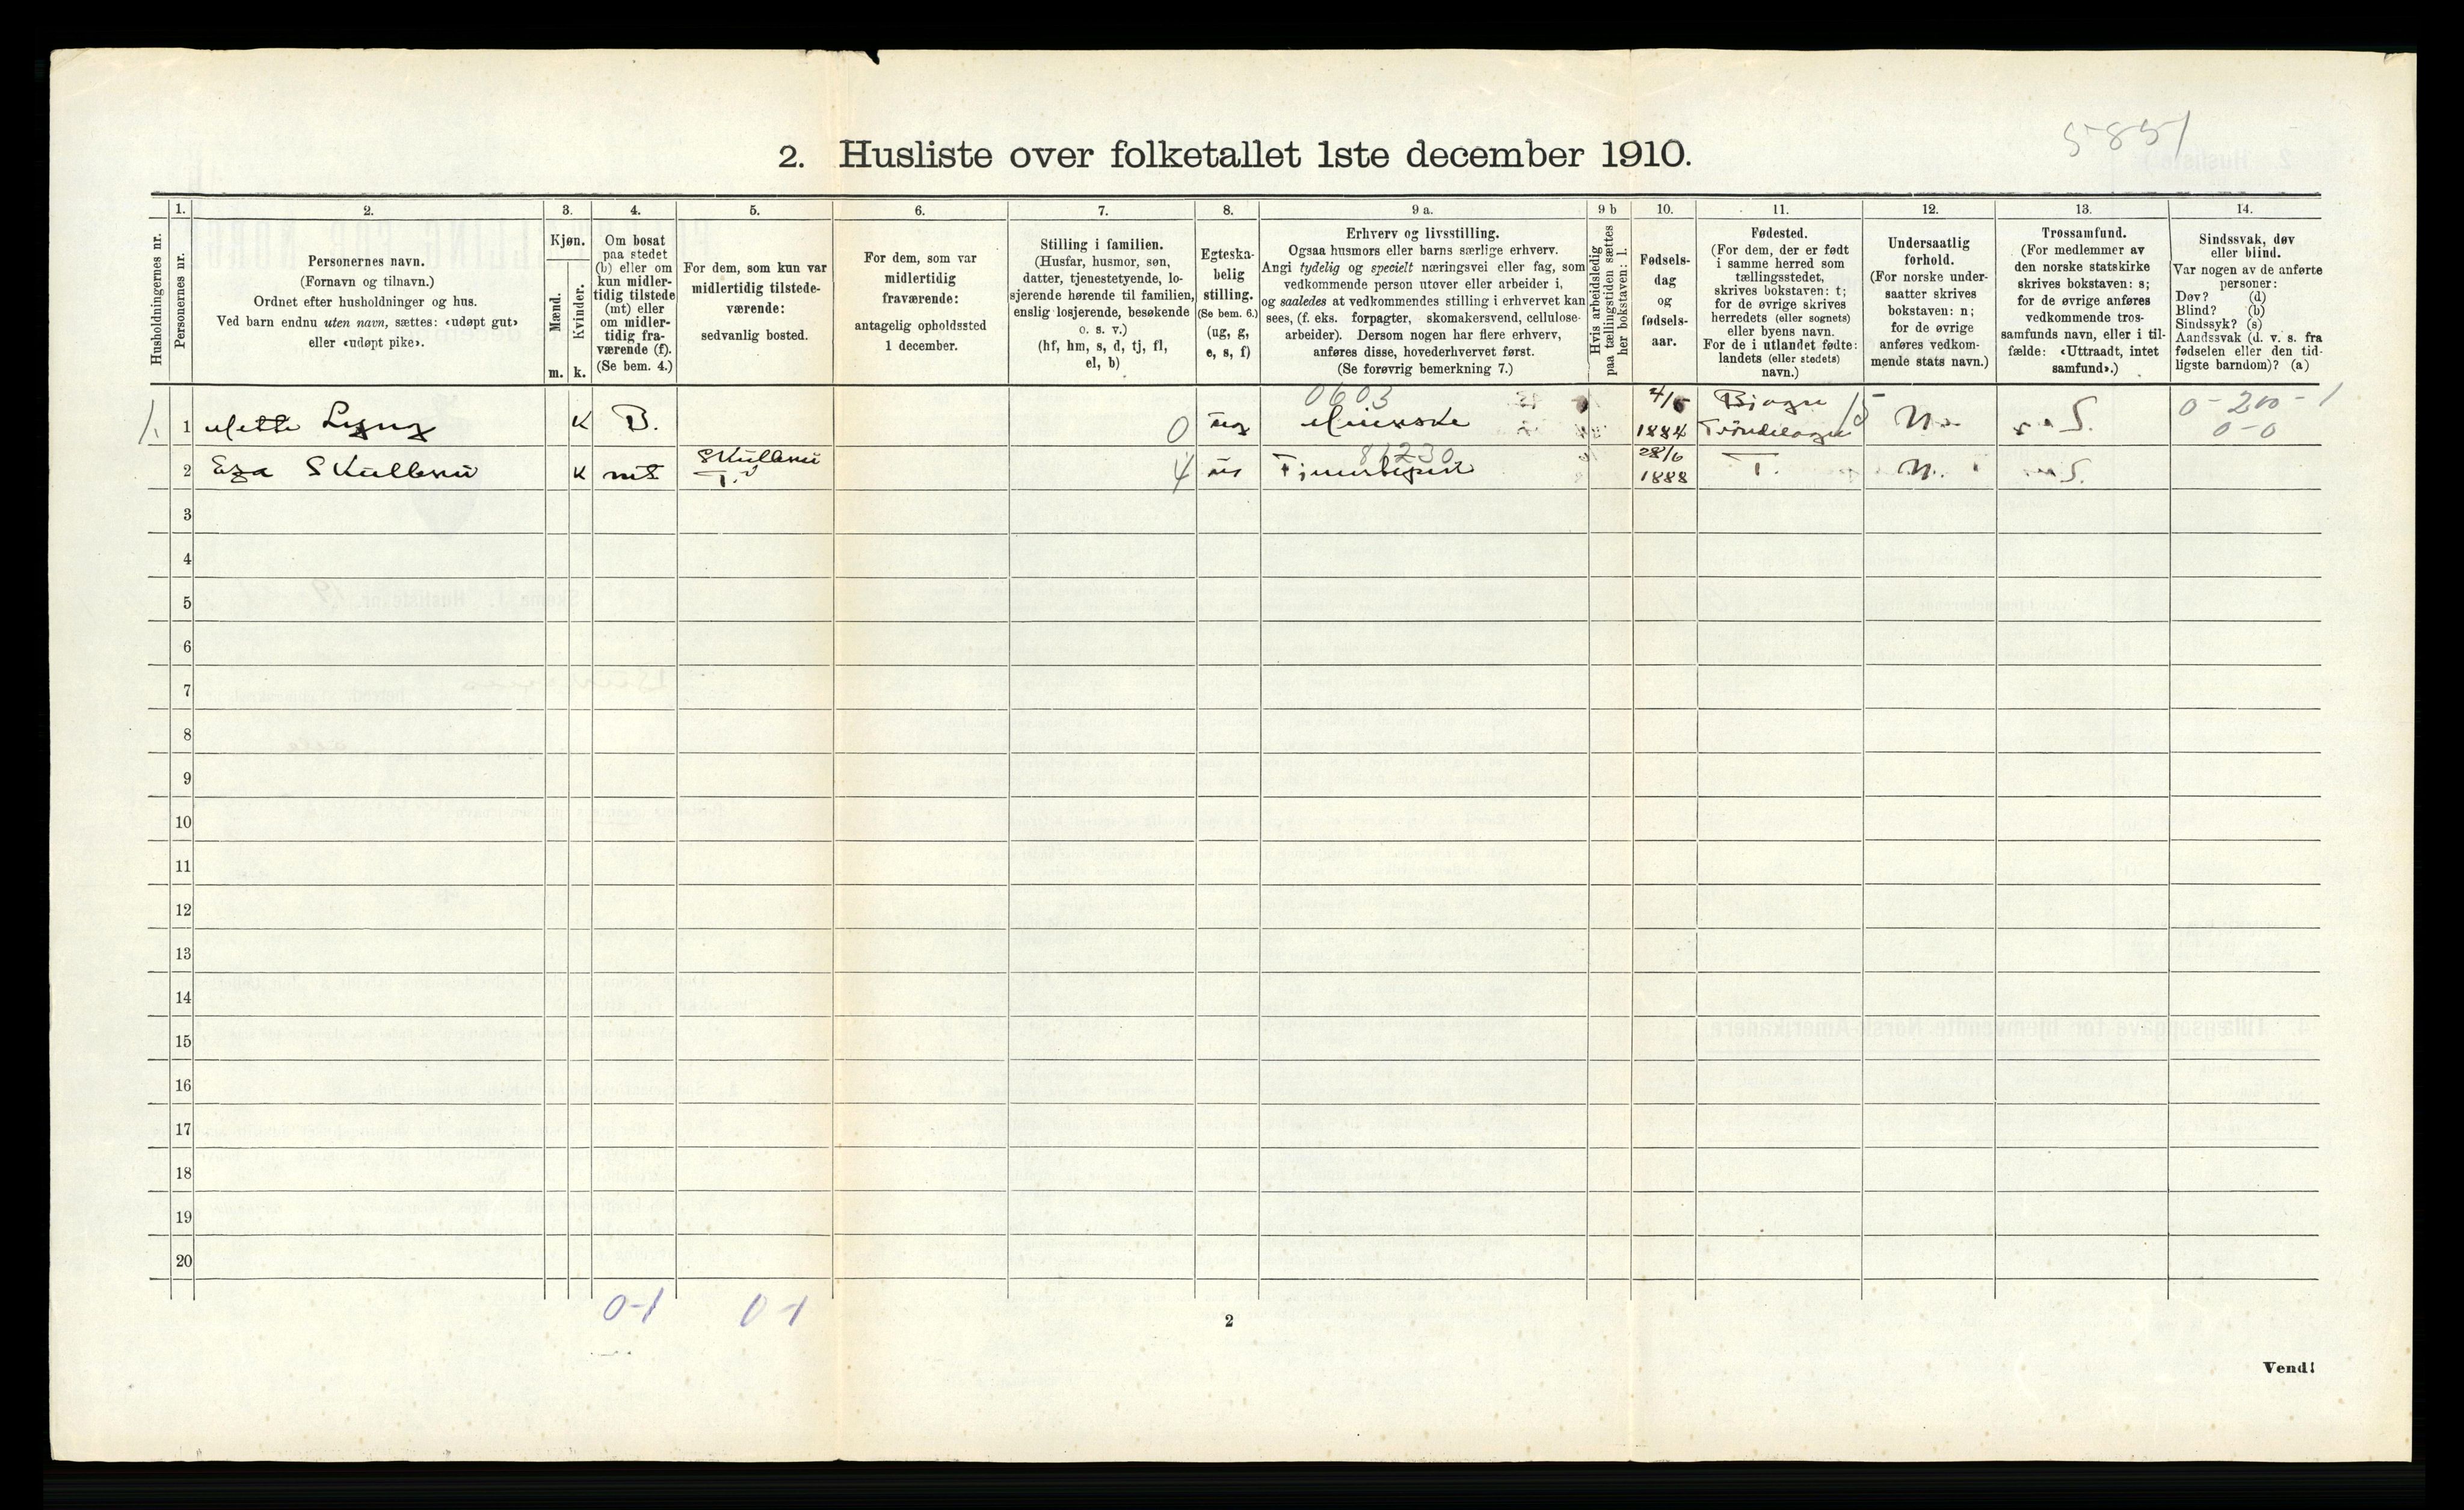 5851
2. Husliste over folketallet 1ste december 1910.
Husholdningernes nr.
1.
Personernes nr.
2.
Personernes navn.
(Fornavn og tilnavn.)
Ordnet efter husholdninger og hus.
Ved barn endnu uten navn, sættes: «udøpt gut»
eller «udøpt pike».
3.
Kjøn.
Mænd.
Kvinder.
m. k.
4.
Om bosat
paa stedet
(b) eller om
kun midler-
tidig tilstede
(mt) eller
om midler-
tidig fra-
værende (f).
(Se bem. 4.)
5.
For dem, som kun var
midlertidig tilstede-
værende:
sedvanlig bosted.
6.
For dem, som var
midlertidig
fraværende:
antagelig opholdssted
1 december.
7.
Stilling i familien.
(Husfar, husmor, søn,
datter, tjenestetyende, lo-
sjerende hørende til familien,
enslig losjerende, besøkende
o. s. v.)
(hf, hm, s, d, tj, fl,
el, b)
8.
Egteska-
belig
stilling.
(Se bem. 6.)
(ug, g,
e, s, f)
9 a.
Erhverv og livsstilling.
Ogsaa husmors eller barns særlige erhverv.
Angi tydelig og specielt næringsvei eller fag, som
vedkommende person utøver eller arbeider i,
og saaledes at vedkommendes stilling i erhvervet kan
sees, (f. eks. forpagter, skomakersvend, cellulose-
arbeider). Dersom nogen har flere erhverv,
anføres disse, hovederhvervet først.
(Se forøvrig bemerkning 7.)
9 b
Hvis arbeidsledig
paa tællingstiden sættes
her bokstaven: l.
10.
Fødsels-
dag
og
fødsels-
aar.
11.
Fødested.
(For dem, der er født
i samme herred som
tællingsstedet,
skrives bokstaven: t;
for de øvrige skrives
herredets (eller sognets)
eller byens navn.
For de i utlandet fødte:
landets (eller stedets)
navn.)
12.
Undersaatlig
forhold.
(For norske under-
saatter skrives
bokstaven: n;
for de øvrige
anføres vedkom-
mende stats navn.)
13.
Trossamfund.
(For medlemmer av
den norske statskirke
skrives bokstaven: s;
for de øvrige anføres
vedkommende tros-
samfunds navn, eller i til-
fælde: «Uttraadt, intet
samfund».)
14.
Sindssvak, døv
eller blind.
Var nogen av de anførte
personer:
Døv? (d)
Blind? (b)
Sindssyk? (s)
Aandssvak (d. v. s. fra
fødselen eller den tid-
ligste barndom)? (a)
0603 4/5 0-200-1
1. 1 Mette Lyng K B. 0 ug 1884 15 N. S. 0-0
81230 28/6
2 K mt T. 4 1888 T. N. S.
3
4
5
6
7
8
9
10
11
12
13
14
15
16
17
18
19
20
0-1 0-1
2
Vend!